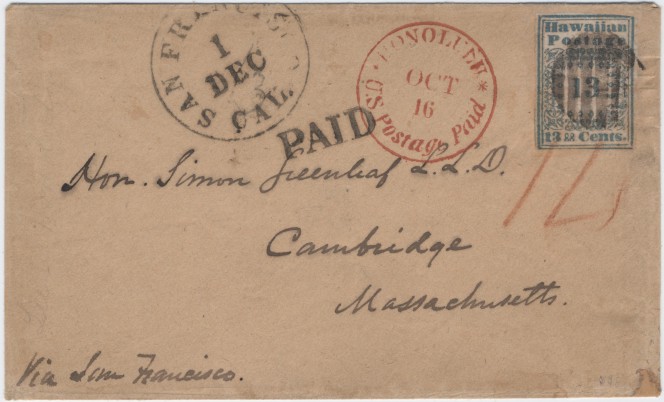 SAN FRANCISCO
1
DEC
CAL.
PAID
HONOLULU *
OCT
16
U.S. Postage Paid
Hawaiian
Postage
13
13 Cents.
Hon. Simon Greenleaf L.L.D.
Cambridge
Massachusetts.
Via San Francisco.